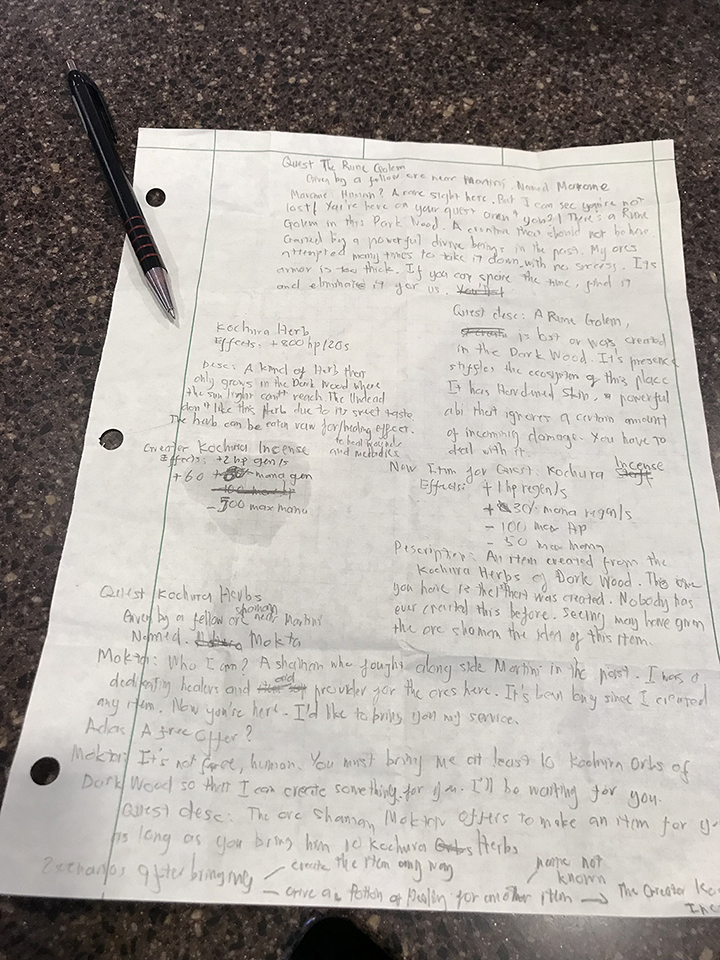 Quest The Rune Golem
Given by a fellow orc near Martini Named Marcome
Marcome: Human? A rare sight here. But I can see you're not
lost! You're here on your quest aren't you?! There's a Rune
Golem in this Dark Wood. A creature that should not be here.
Created by a powerful divine beings in the past. My orcs
attempted many times to take it down with no success. Its
armor is too thick. If you can spare the time, find it
and eliminate it for us.
Quest desc: A Rune Golem,
is lost or was created
in the Dark Wood. It's presence
the ecosystem of this place
It has Hardened Skin, a powerful
abi that ignores a certain amount
of incoming damage. You have to
deal with it.
Kochura Herb
Effects: +200 hp/20s
Desc: A kind of Herb that
only grows in the Dark Wood where
the sun light can't reach. The Undead
don't like this herb due to its sweet taste
The herb can be eaten raw for/healing effect.
to heal wounds
and
Greater Kochura Incense
Effects: +2hp gen/s
+60 mana gen
-100 max hp
-500 max mana
New Item for Quest: Kochura Incense
Staff
Effects: +1hp regen/s
+30/ mana regen/s
-100 max HP
-50 max mana
Description: An item created from the
Kochura Herbs of Dark Wood. This one
you have is the 1st that was created. Nobody has
ever created this before. Seeing may have given
the orc shaman the idea of this item.
Quest Kochura Herbs
Given by a fellow orc shaman near Martini
Named. Mokta
Mokta: Who I am? A shaman who fought along side Martini in the past. I was a
healers and aid provider for the orcs here. It's been long since I created
any item. Now you're here. I'd like to bring you my service.
A free offer?
Mokta: It's not free, human. You must bring me at least 10 Kochura orbs of
Dark Wood so that I can create something for you. I'll be waiting for you.
Quest desc: The orc shaman Mokta offers to make an item for
as long as you bring him 10 Kochura Herbs
2 scenarios after bringing
create the item any way
give a Potion of Healing for another item → The Greater
name not
known